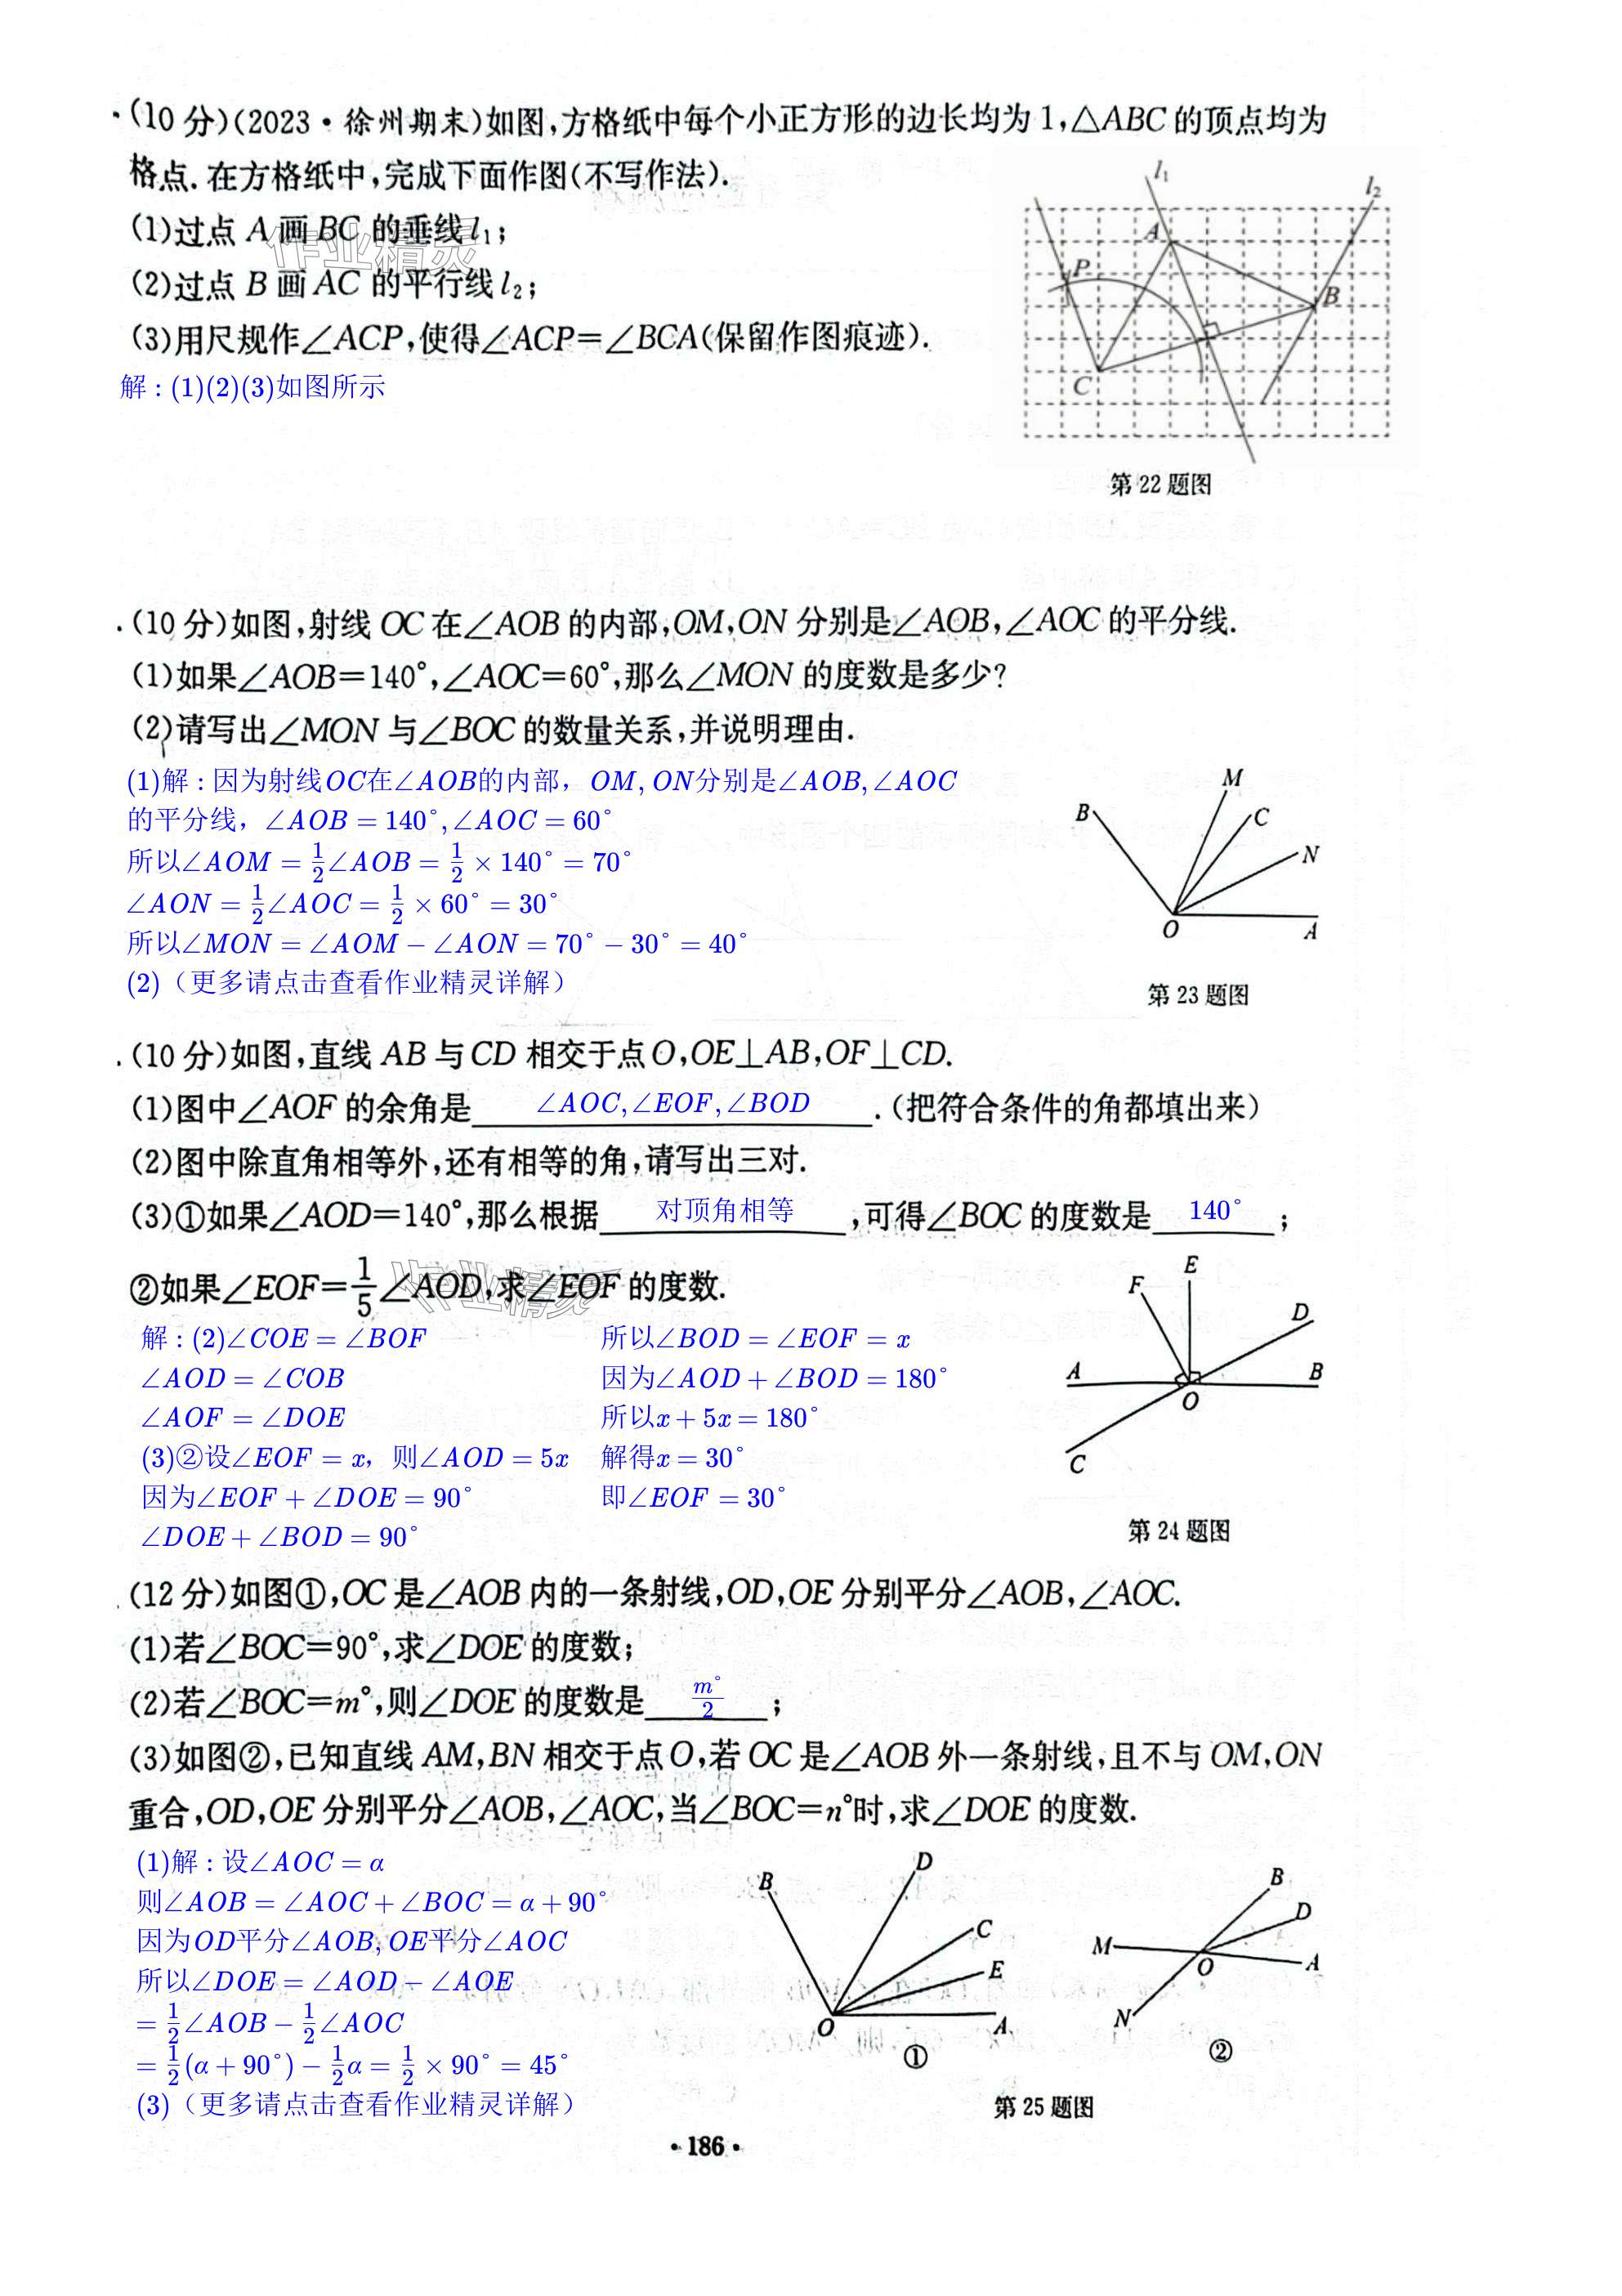 (10分)(2023·徐州期末)如图,方格纸中每个小正方形的边长均为1,△ABC的顶点均为
格点.在方格纸中,完成下面作图(不写作法).
(1)过点A画BC的垂线l₁;
(2)过点B画AC的平行线l₂;
(3)用尺规作∠ACP,使得∠ACP=∠BCA(保留作图痕迹).
解:(1)(2)(3)如图所示
l₁
l₂
A
P
B
C
第22题图
作业精灵
.(10分)如图,射线OC在∠AOB的内部,OM,ON分别是∠AOB,∠AOC的平分线.
(1)如果∠AOB=140°,∠AOC=60°,那么∠MON的度数是多少?
(2)请写出∠MON与∠BOC的数量关系,并说明理由.
(1)解:因为射线OC在∠AOB的内部，OM,ON分别是∠AOB,∠AOC
的平分线，∠AOB=140°,∠AOC=60°
所以∠AOM=1/2∠AOB=1/2×140°=70°
∠AON=1/2∠AOC=1/2×60°=30°
所以∠MON=∠AOM−∠AON=70°−30°=40°
(2)（更多请点击查看作业精灵详解）
M
B
C
N
O
A
第23题图
.(10分)如图,直线AB与CD相交于点O,OE⊥AB,OF⊥CD.
(1)图中∠AOF的余角是∠AOC,∠EOF,∠BOD.(把符合条件的角都填出来)
(2)图中除直角相等外,还有相等的角,请写出三对.
(3)①如果∠AOD=140°,那么根据对顶角相等,可得∠BOC的度数是140°;
②如果∠EOF=1/5∠AOD,求∠EOF的度数.
作业精灵
解:(2)∠COE=∠BOF
∠AOD=∠COB
∠AOF=∠DOE
(3)②设∠EOF=x，则∠AOD=5x
因为∠EOF+∠DOE=90°
∠DOE+∠BOD=90°
所以∠BOD=∠EOF=x
因为∠AOD+∠BOD=180°
所以x+5x=180°
解得x=30°
即∠EOF=30°
E
F
D
A
B
O
C
第24题图
(12分)如图①,OC是∠AOB内的一条射线,OD,OE分别平分∠AOB,∠AOC.
(1)若∠BOC=90°,求∠DOE的度数;
(2)若∠BOC=m°,则∠DOE的度数是m°/2;
(3)如图②,已知直线AM,BN相交于点O,若OC是∠AOB外一条射线,且不与OM,ON
重合,OD,OE分别平分∠AOB,∠AOC,当∠BOC=n°时,求∠DOE的度数.
(1)解:设∠AOC=α
则∠AOB=∠AOC+∠BOC=α+90°
因为OD平分∠AOB,OE平分∠AOC
所以∠DOE=∠AOD−∠AOE
=1/2∠AOB−1/2∠AOC
=1/2(α+90°)−1/2α=1/2×90°=45°
(3)（更多请点击查看作业精灵详解）
B
D
C
E
O
A
①
B
D
M
O
A
N
②
第25题图
·186·